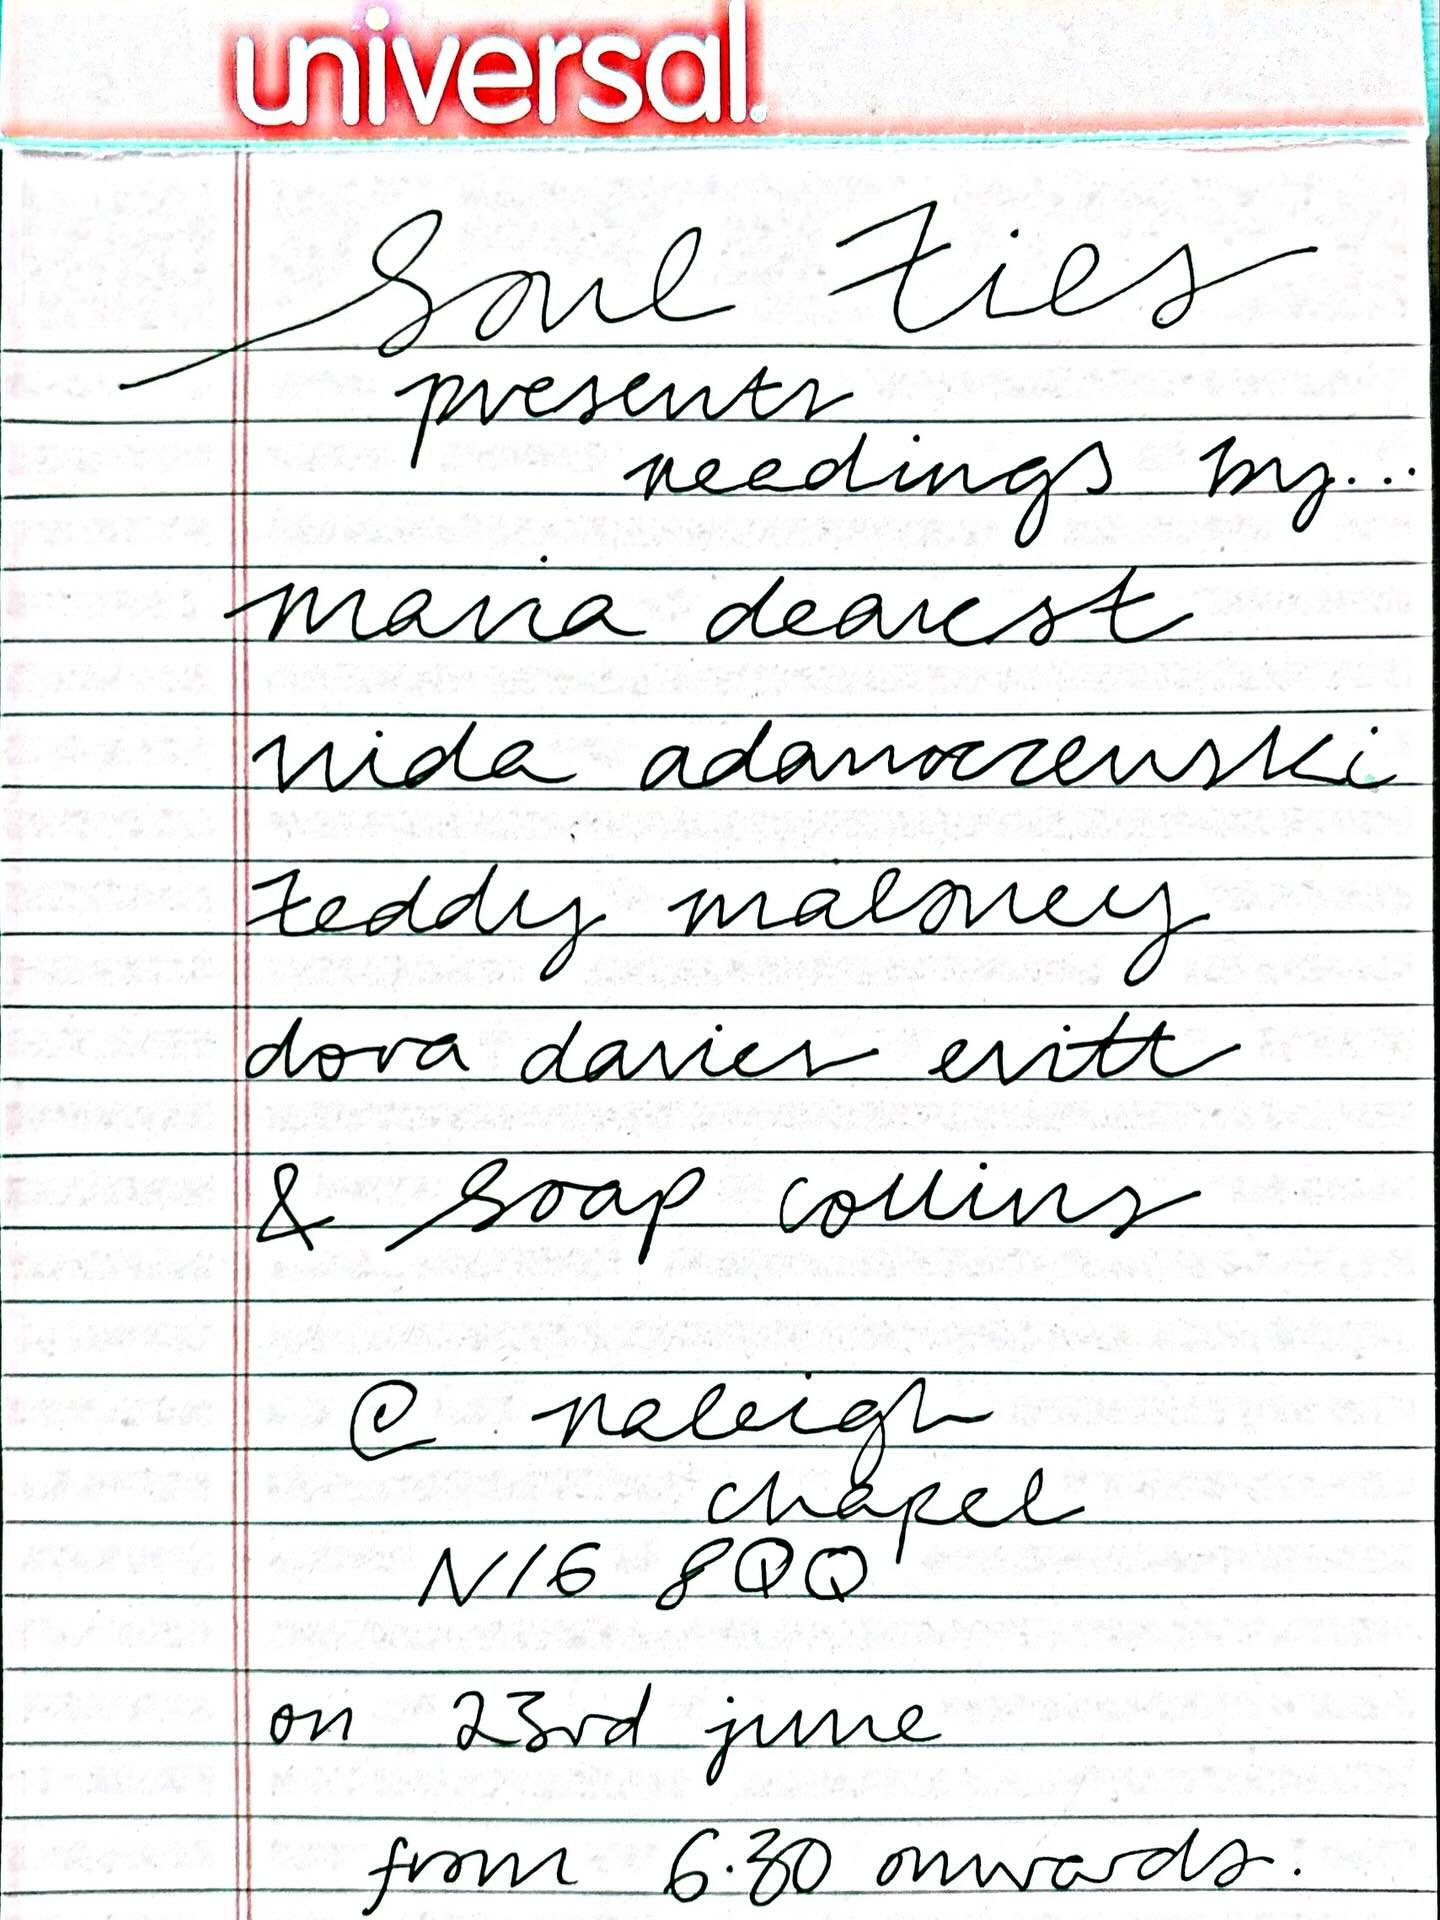 universal.
Soul Ties
presents
readings by...
maria dearest
nida adamoczewski
teddy maloney
dora davies evitt
& Soap collins
@ raleigh
chapel
N16 8QQ
on 23rd june
from 6.30 onwards.